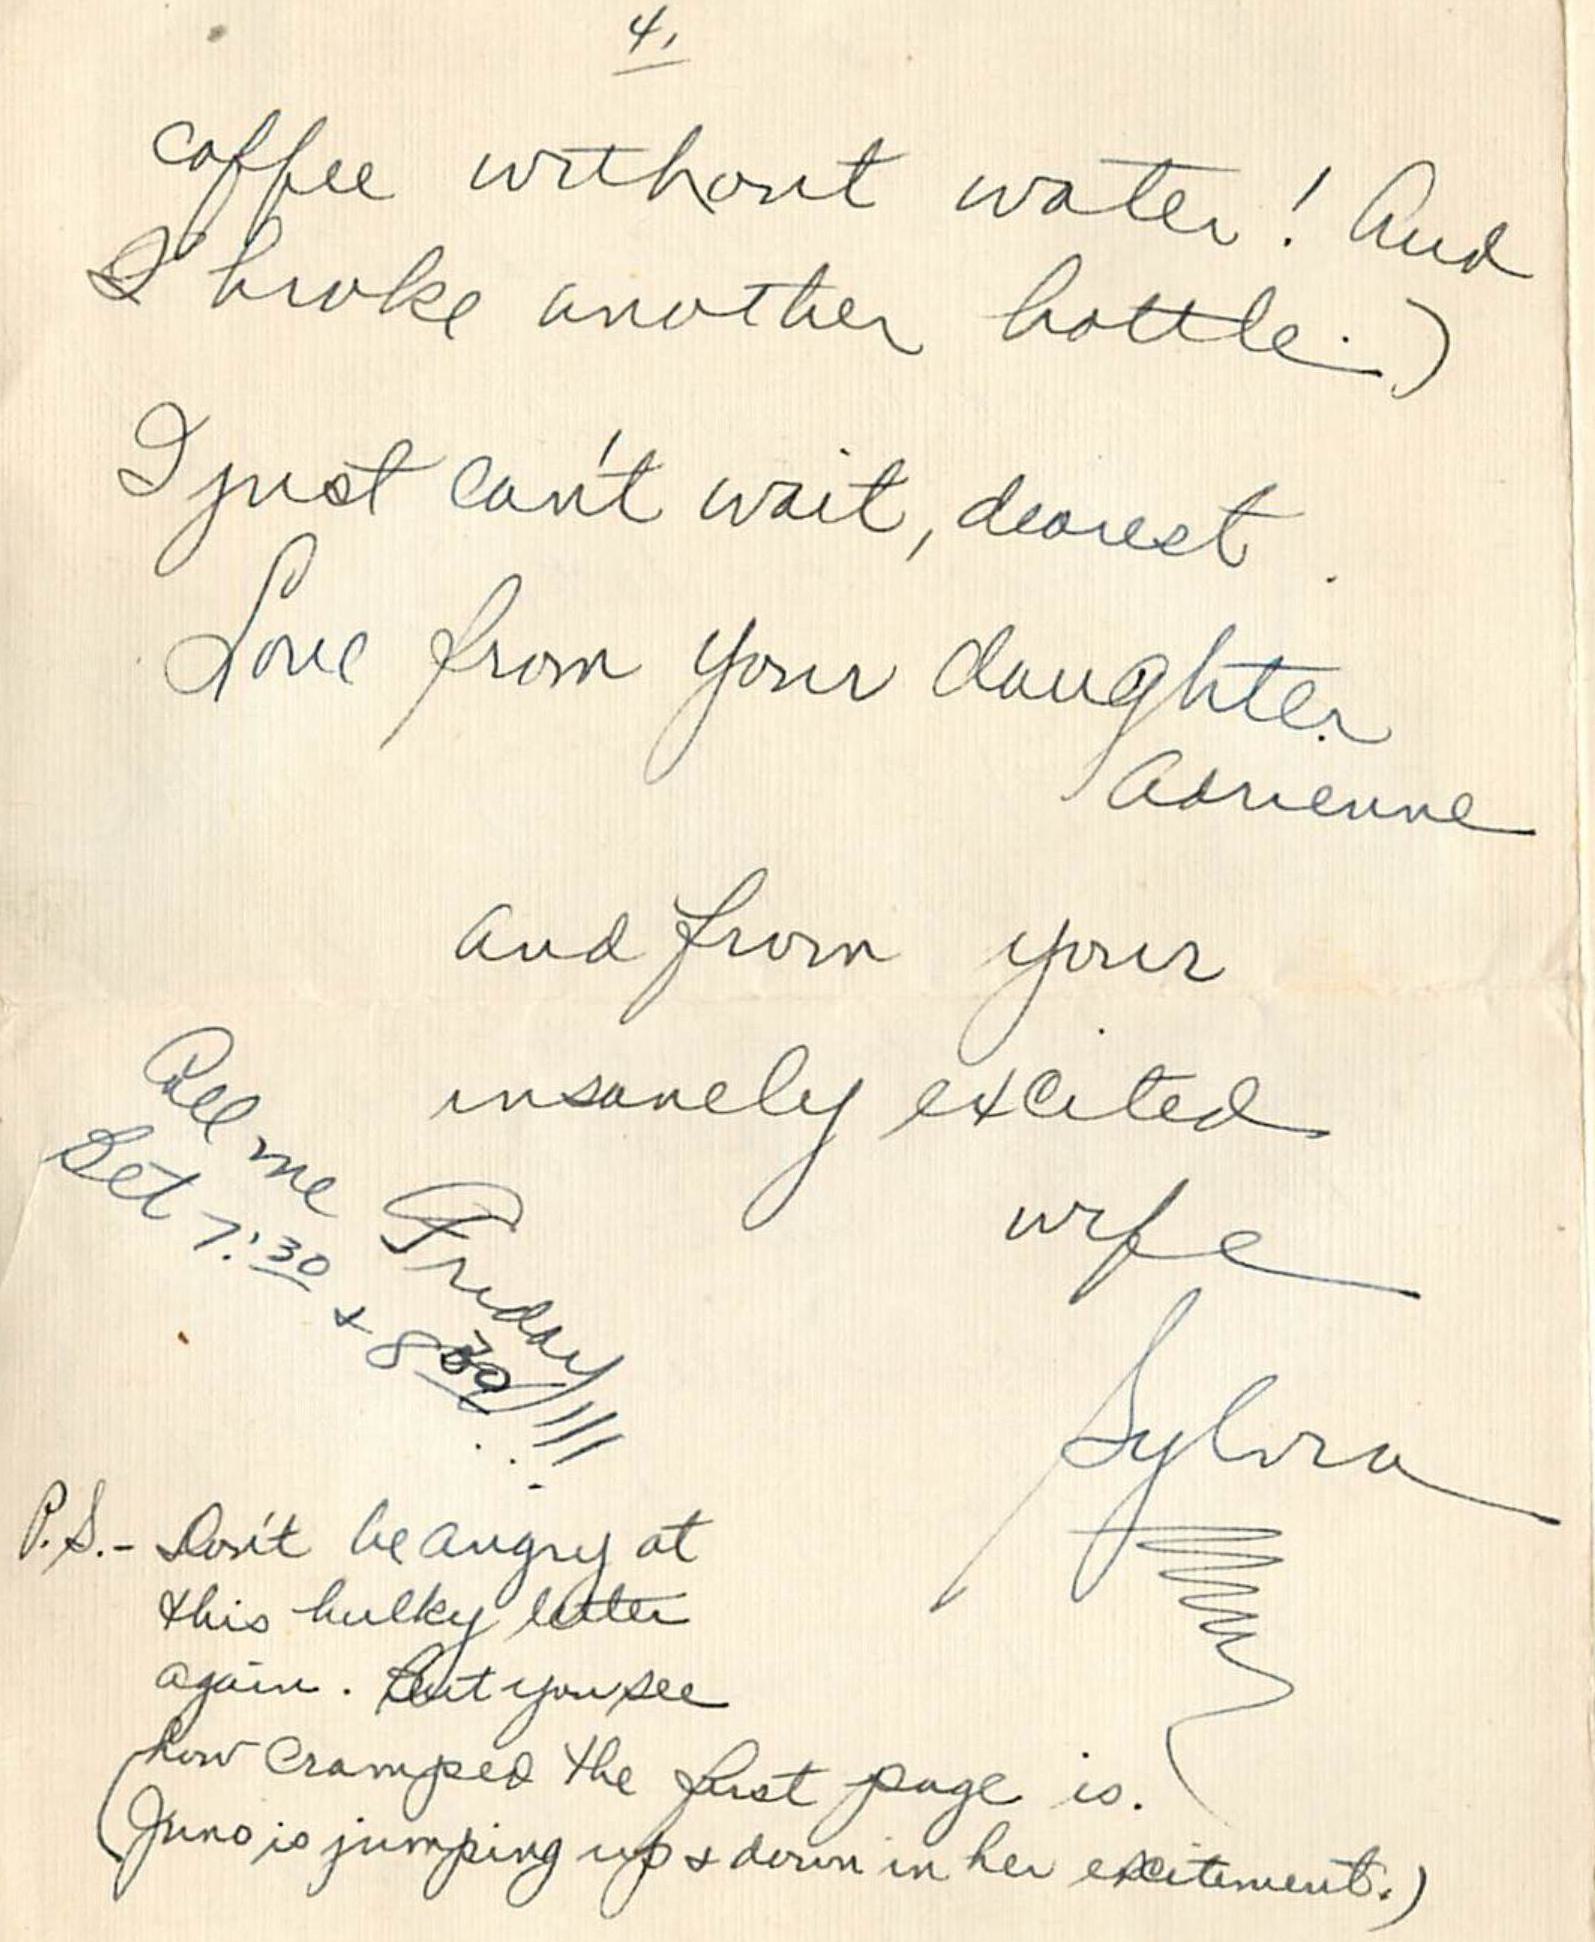 4.
coffee without water! And
I broke another bottle.)
I just can't wait, dearest.
Love from your daughter
Adrienne
and from your
insanely excited
wife
Sylvia
Call me Friday
Bet 7:30 & 8:30!!!!
P.S.- Don't be angry at
this bulky letter
again. But you see
how cramped the first page is.
(Juno is jumping up & down in her excitement.)